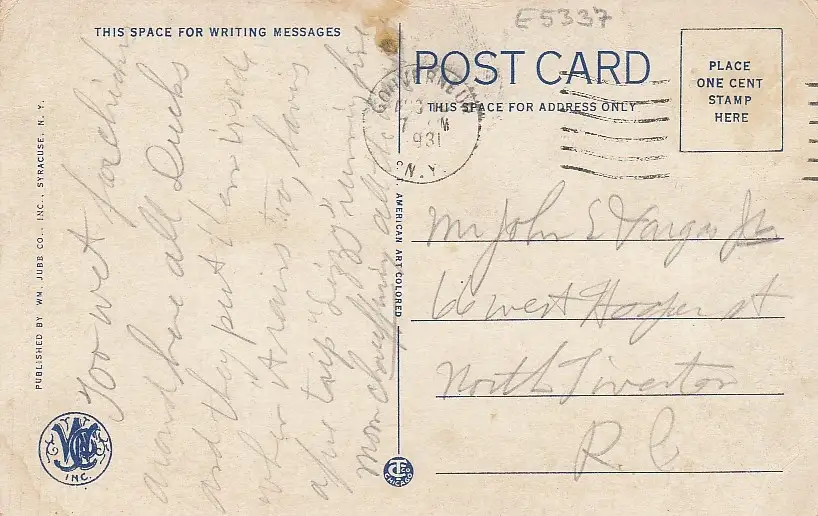 E5337
THIS SPACE FOR WRITING MESSAGES
POST CARD
THIS SPACE FOR ADDRESS ONLY
PLACE
ONE CENT
STAMP
HERE
GOUVERNEUR
AUG
7 M
1931
N.Y.
Too wet for chickens
around here all Ducks
and they put them inside
when it rains too, having
a fine trip "Lizzo" running fine
mom chauffing all the
Mr John E Vargas Jr
66 west Hooper st
North Tiverton
R. I
PUBLISHED BY WM. JUBB CO., INC., SYRACUSE, N. Y.
AMERICAN ART COLORED
WJCO
INC.
CT CO
CHICAGO